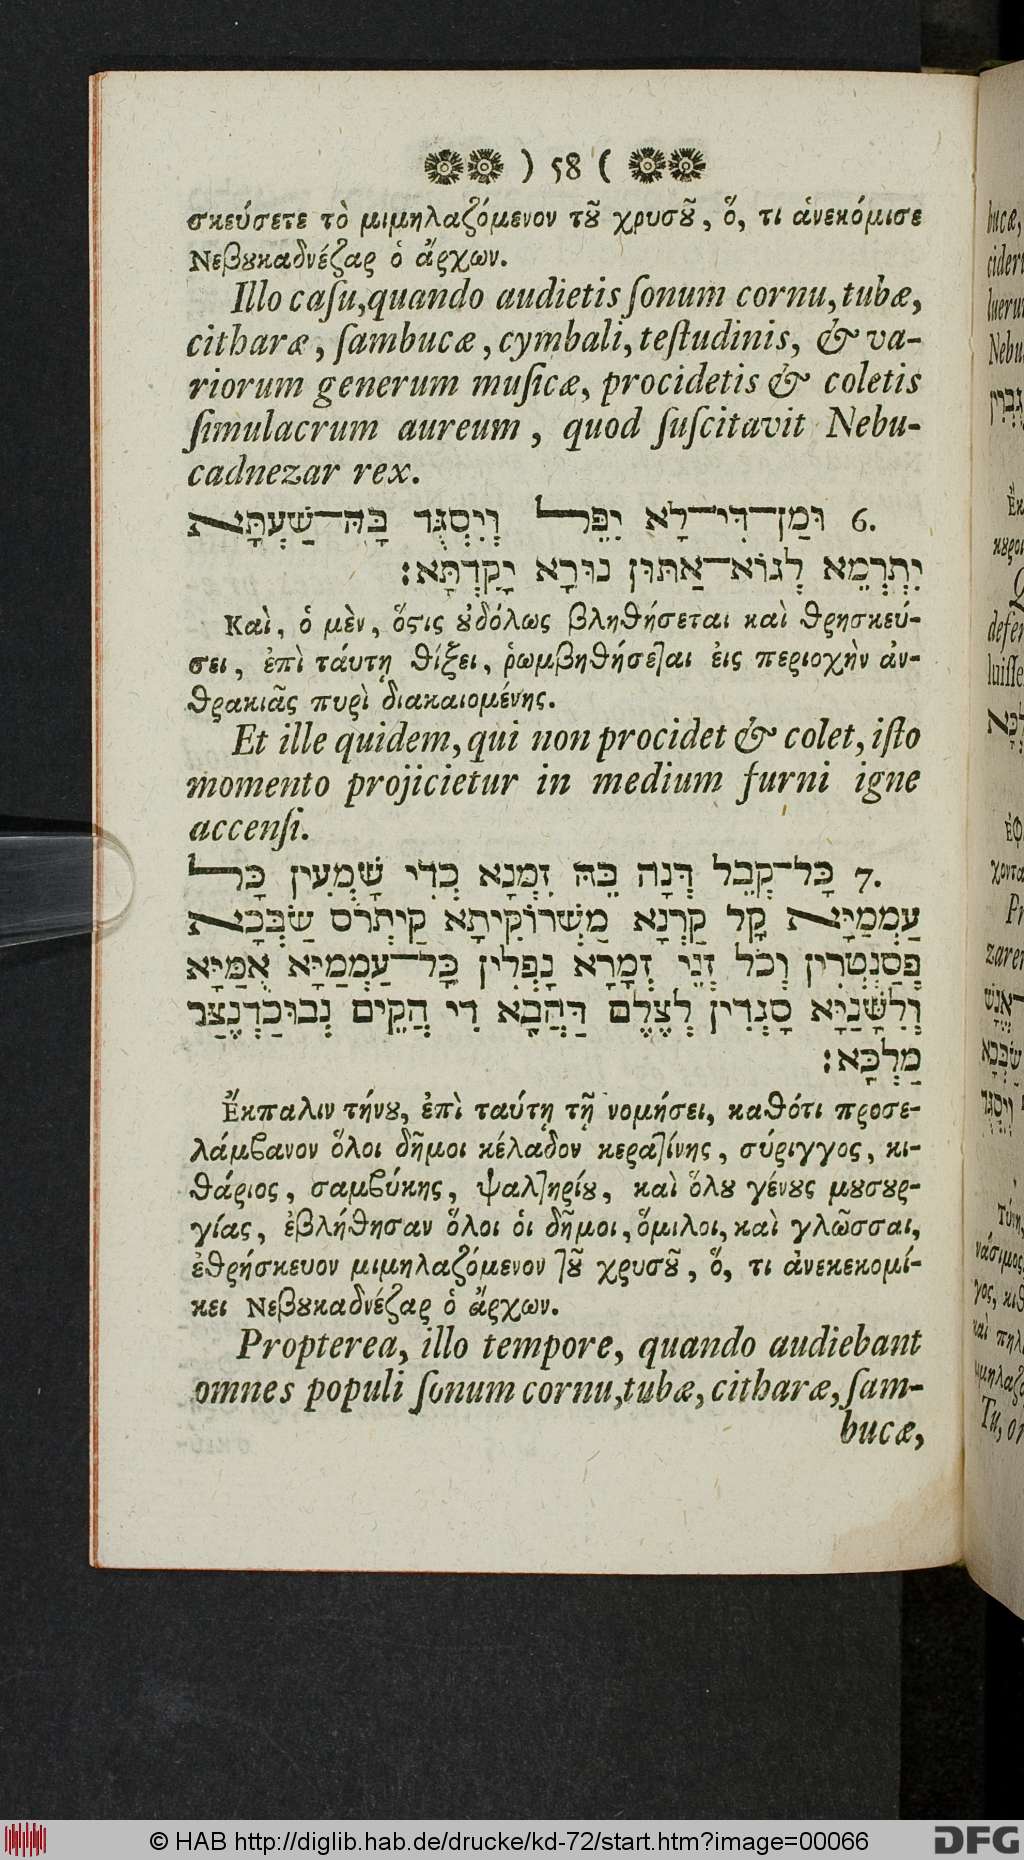 ) 58 (
σκεύσετε τὸ μιμηλαζόμενον τȣ͂ χρυσȣ͂, ὅ, τι ἀνεκόμισε
Νεβȣκαδνέζας ὁ ἄρχων.
Illo caſu, quando audietis ſonum cornu, tubæ,
citharæ, ſambucæ, cymbali, teſtudinis, & va-
riorum generum muſicæ, procidetis & coletis
ſimulacrum aureum, quod ſuſcitavit Nebu-
cadnezar rex.
6. וּמַן־דִּי־לָא יִפֵּל וְיִסְגֻּד בַּהּ־שַׁעְתָּא
יִתְרְמֵא לְגוֹא־אַתּוּן נוּרָא יָקִדְתָּא׃
Καὶ, ὁ μὲν, ὅϛις ȣ̓δόλως βληθήσεται καὶ θρησκεύ-
σει, ἐπὶ τάυτῃ θίξει, ῥωμβηθήσεται ἐις περιοχὴν ἀν-
θρακιᾶς πυρὶ διακαιομένης.
Et ille quidem, qui non procidet & colet, iſto
momento projicietur in medium furni igne
accenſi.
7. כָּל־קְבֵל דְּנָה בֵּהּ זִמְנָא כְּדִי שָׁמְעִין כָּל
עַמְמַיָּא קָל קַרְנָא מַשְׁרוֹקִיתָא קַיתְרֹס שַׂבְּכָא
פְּסַנְטְרִין וְכֹל זְנֵי זְמָרָא נָפְלִין כָּל־עַמְמַיָּא אֻמַּיָּא
וְלִשָּׁנַיָּא סָגְדִין לְצֶלֶם דַּהֲבָא דִי הֲקֵים נְבוּכַדְנֶצַּר
מַלְכָּא׃
Ἔκπαλιν τήνȣ, ἐπὶ ταύτῃ τῇ νομήσει, καθότι προσε-
λάμβανον ὅλοι δῆμοι κέλαδον κερατίνης, σύριγγος, κι-
θάριος, σαμβύκης, ψαλτηρίȣ, καὶ ὅλȣ γένȣς μȣσȣρ-
γίας, ἐβλήθησαν ὅλοι ὁι δῆμοι, ὅμιλοι, καὶ γλῶσσαι,
ἐθρήσκευον μιμηλαζόμενον τȣ͂ χρυσȣ͂, ὅ, τι ἀνεκεκομί-
κει Νεβȣκαδνέζας ὁ ἄρχων.
Propterea, illo tempore, quando audiebant
omnes populi ſonum cornu, tubæ, citharæ, ſam-
bucæ,
© HAB http://diglib.hab.de/drucke/kd-72/start.htm?image=00066
DFG